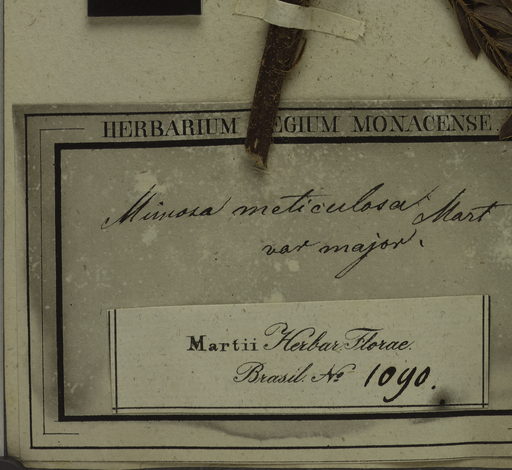 HERBARIUM REGIUM MONACENSE.
Mimosa meticulosa Mart
var major.
Martii Herbar. Florae.
Brasil. No 1090.